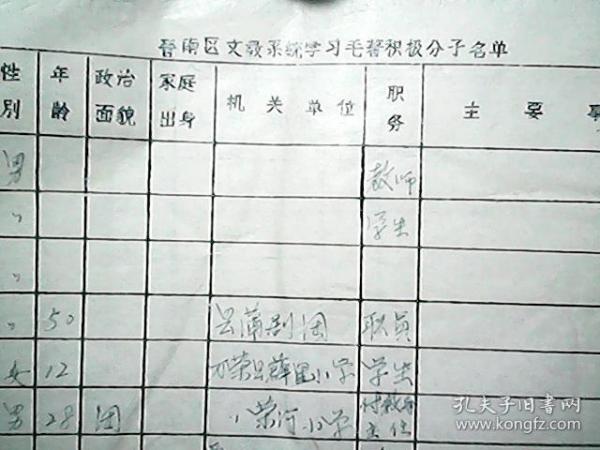 晋南区文教系统学习毛著积极分子名单
性别 年龄 政治面貌 家庭出身 机关单位 职务 主要事
男 教师
〃 学生
〃
〃 50 县蒲剧团 职员
女 12 万荣县薛里小学 学生
男 28 团 〃荣河小学 付教导主任
孔夫子旧书网
www.kongfz.com